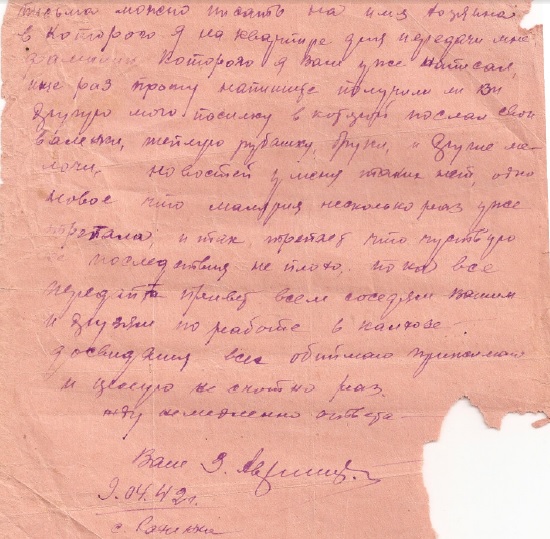 письма можно писать на имя хозяина
в которого я на квартире для передачи мне
фамилии которого я вам уже написал,
еще раз прошу напишите получили ли вы
другую мою посылку в которой послал свои
валенки, теплую рубашку, брюки, и другие ме-
лочи. новостей у меня таких нет, одно
новое что малярия несколько раз уже
трепала, и так, трепает что чувствую
последствия не плохо. пока все
передайте привет всем соседям вашим
и друзям по работе в
досвидания всех обнимаю
и целую не счотно раз.
жду немедленно ответа
Ваш З.
9.04.42 г.
с.